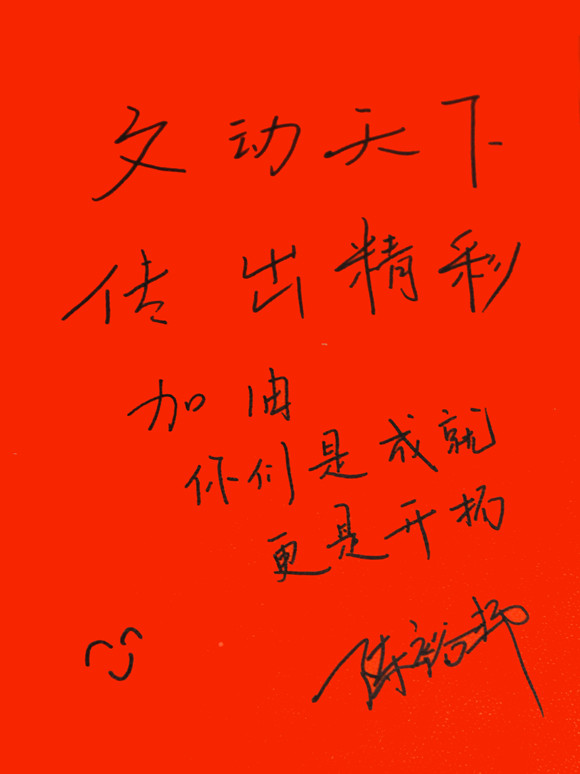 文动天下
传出精彩
加油
你们是成就
更是开扬
陈裕扬